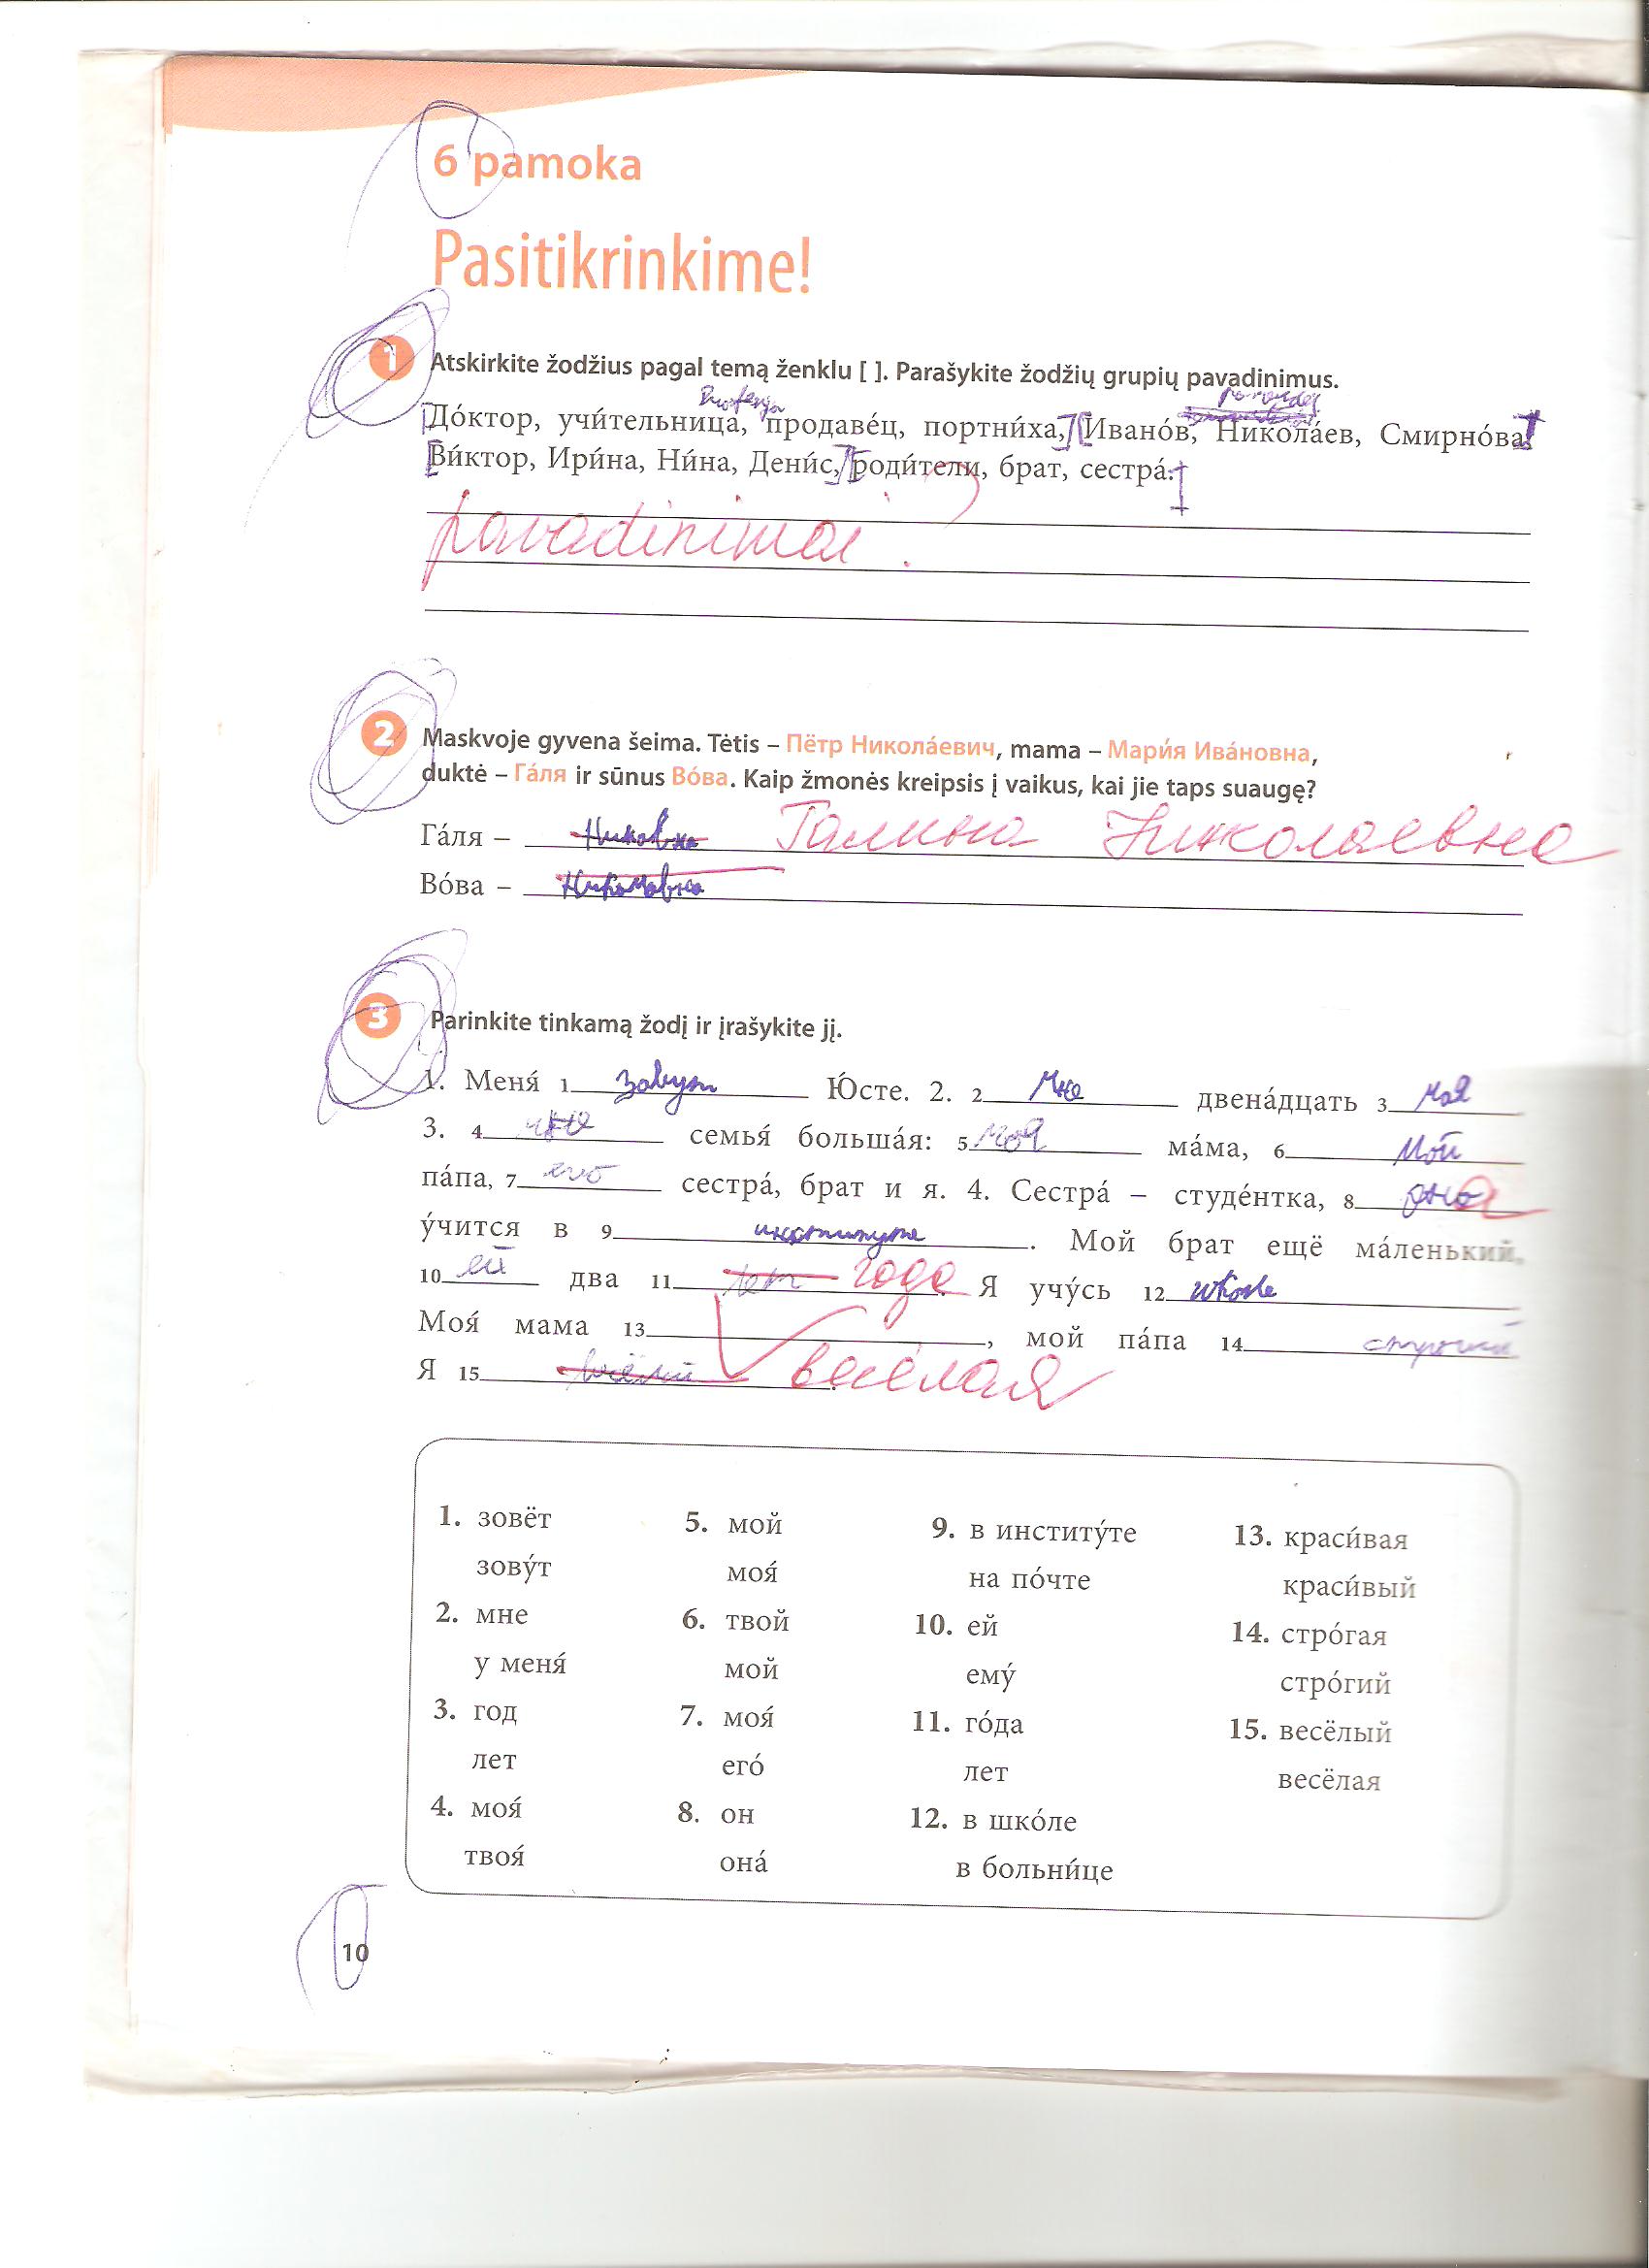 6 pamoka
Pasitikrinkime!
1 Atskirkite žodžius pagal temą ženklu [ ]. Parašykite žodžių grupių pavadinimus.
До́ктор, учи́тельница, продаве́ц, портни́ха, Ивано́в, Никола́ев, Смирно́ва,
Ви́ктор, Ири́на, Ни́на, Дени́с, роди́тели, брат, сестра́.
pavadinimai
2 Maskvoje gyvena šeima. Tėtis – Пётр Никола́евич, mama – Мари́я Ива́новна,
duktė – Га́ля ir sūnus Во́ва. Kaip žmonės kreipsis į vaikus, kai jie taps suaugę?
Га́ля – Галина Николаевна
Во́ва –
3 Parinkite tinkamą žodį ir įrašykite jį.
1. Меня́ 1 завут Ю́сте. 2. 2 мне двена́дцать 3 моя
3. 4 семья́ больша́я: 5 моя ма́ма, 6 мой
па́па, 7 его сестра́, брат и я. 4. Сестра́ – студе́нтка, 8 она
у́чится в 9 институте. Мой брат ещё ма́ленький,
10 ей два 11 лет года. Я учу́сь 12 школе
Моя́ мама 13, мой па́па 14
Я 15 весёлая
1. зовёт
зову́т
2. мне
у меня́
3. год
лет
4. моя́
твоя́
5. мой
моя́
6. твой
мой
7. моя́
его́
8. он
она́
9. в институ́те
на по́чте
10. ей
ему́
11. го́да
лет
12. в шко́ле
в больни́це
13. краси́вая
краси́вый
14. стро́гая
стро́гий
15. весёлый
весёлая
10